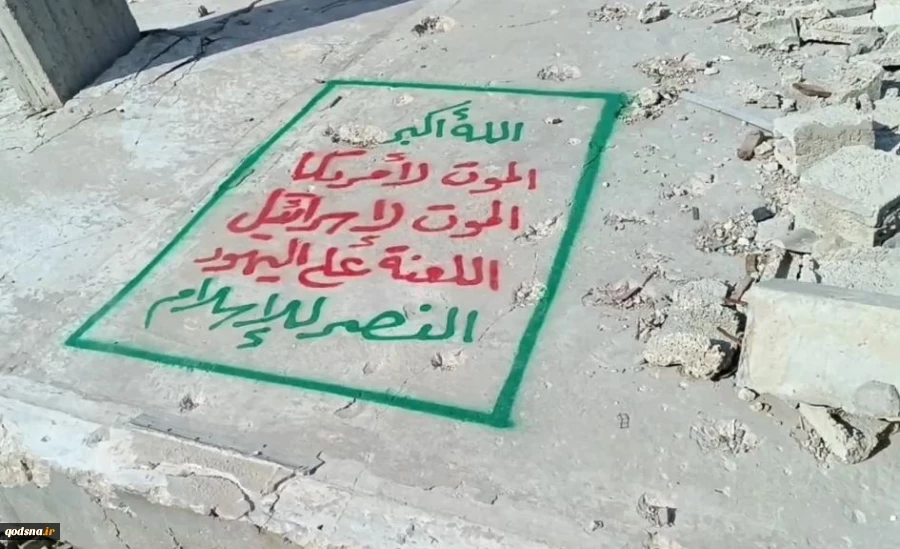 الله أكبر
الموت لأمريكا
الموت لإسرائيل
اللعنة على اليهود
النصر للإسلام
qodsna.ir